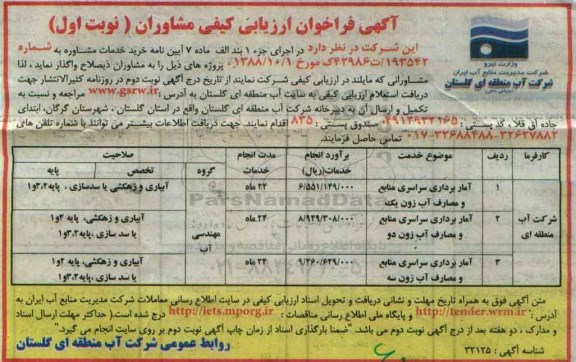 آگهی فراخوان ارزیابی کیفی مشاوران ( نوبت اول)
وزارت نیرو
شرکت مدیریت منابع آب ایران
شرکت آب منطقه ای گلستان
این شرکت در نظر دارد در اجرای جزء ۱ بند الف ماده ۷ آیین نامه خرید خدمات مشاوره به شماره
۱۹۳۵۴۲/ت۴۲۹۸۶ک مورخ ۱۳۸۸/۱۰/۱، پروژه های ذیل را به مشاوران ذیصلاح واگذار نماید ، لذا
مشاورانی که مایلند در ارزیابی کیفی شرکت نمایند از تاریخ درج آگهی نوبت دوم در روزنامه کثیرالانتشار جهت
دریافت استعلام ارزیابی کیفی به سایت آب منطقه ای گلستان به آدرس www.gsrw.ir مراجعه و نسبت به
تکمیل و ارسال آن به دبیرخانه شرکت آب منطقه ای گلستان واقع در استان گلستان ، شهرستان گرگان، ابتدای
جاده آق قلا، کد پستی: ۴۹۱۳۹۳۳۱۶۵ صندوق پستی: ۸۳۵ اقدام نمایند. جهت دریافت اطلاعات بیشتر می توانند با شماره تلفن های
۳۲۶۲۷۸۸۲-۳۲۶۸۸۴۸۸-۰۱۷ تماس حاصل فرمایند.
کارفرما ردیف موضوع خدمت برآورد انجام خدمات(ریال) مدت انجام خدمات صلاحیت
گروه تخصص پایه
شرکت آب منطقه ای
مهندسی آب
۱ آمار برداری سراسری منابع و مصارف آب زون یک ۶/۵۵۱/۱۴۹/۰۰۰ ۲۴ ماه آبیاری و زهکشی یا سدسازی ، پایه۳،۲و۱
۲ آمار برداری سراسری منابع و مصارف آب زون دو ۸/۹۲۹/۳۰۸/۰۰۰ ۲۴ ماه آبیاری و زهکشی، پایه ۲و۱ یا سد سازی ،پایه۳،۲و۱
۳ آمار برداری سراسری منابع و مصارف آب زون سه ۹/۲۶۰/۶۲۹/۰۰۰ ۲۴ ماه آبیاری و زهکشی، پایه ۲و۱ یا سد سازی، پایه۳،۲و۱
ParsNamadData
متن آگهی فوق به همراه تاریخ مهلت و نشانی دریافت و تحویل اسناد ارزیابی کیفی در سایت اطلاع رسانی معاملات شرکت مدیریت منابع آب ایران به
آدرس: http://tender.wrm.ir و پایگاه ملی اطلاع رسانی مناقصات : http://iets.mporg.ir درج شده است.( حداکثر مهلت ارسال اسناد
و مدارک ، دو هفته بعد از درج آگهی نوبت دوم می باشد. "ضمنا بارگذاری اسناد از زمان چاپ آگهی نوبت دوم بر روی سایت انجام می گیرد."
شناسه آگهی : ۳۲۱۲۵
روابط عمومی شرکت آب منطقه ای گلستان